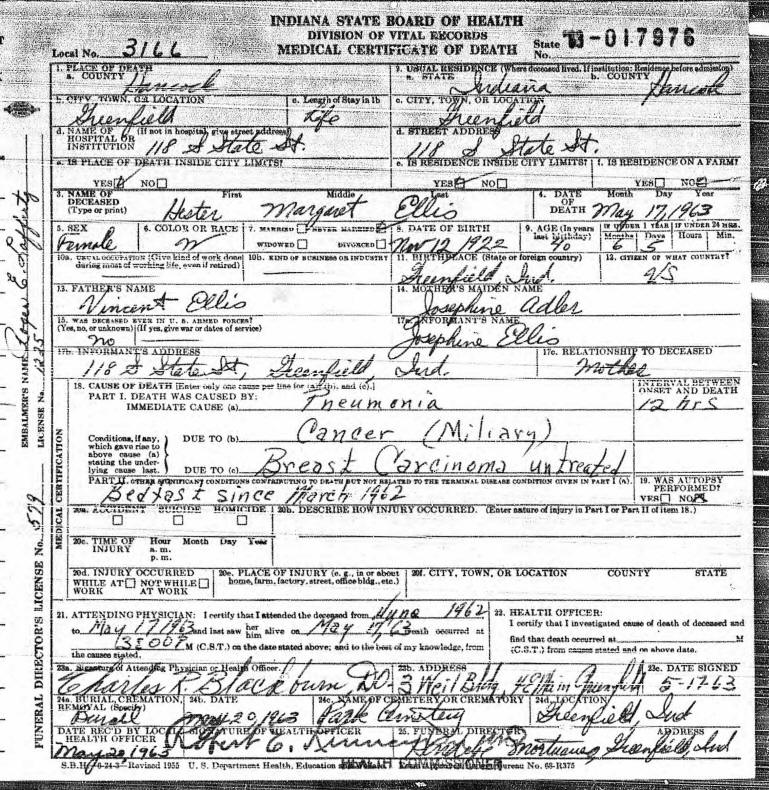 INDIANA STATE BOARD OF HEALTH
DIVISION OF VITAL RECORDS
Local No. 3166 MEDICAL CERTIFICATE OF DEATH State No. 63-017976
1. PLACE OF DEATH 2. USUAL RESIDENCE (Where deceased lived. If institution: Residence before admission)
a. COUNTY Hancock a. STATE Indiana b. COUNTY Hancock
b. CITY, TOWN, OR LOCATION c. Length of Stay in 1b c. CITY, TOWN, OR LOCATION
Greenfield Life Greenfield
d. NAME OF (If not in hospital, give street address) HOSPITAL OR INSTITUTION 118 S State St. d. STREET ADDRESS 118 S State St.
e. IS PLACE OF DEATH INSIDE CITY LIMITS? e. IS RESIDENCE INSIDE CITY LIMITS? f. IS RESIDENCE ON A FARM?
YES NO YES NO YES NO
3. NAME OF DECEASED (Type or print) First Middle Last 4. DATE OF DEATH Month Day Year
Hester Margaret Ellis May 17, 1963
5. SEX 6. COLOR OR RACE 7. MARRIED NEVER MARRIED 8. DATE OF BIRTH 9. AGE (In years last birthday) IF UNDER 1 YEAR IF UNDER 24 HRS.
Months Days Hours Min.
Female W WIDOWED DIVORCED Nov 12 1922 40 6 5
10a. USUAL OCCUPATION (Give kind of work done during most of working life, even if retired) 10b. KIND OF BUSINESS OR INDUSTRY 11. BIRTHPLACE (State or foreign country) 12. CITIZEN OF WHAT COUNTRY?
Greenfield Ind. US
13. FATHER'S NAME 14. MOTHER'S MAIDEN NAME
Vincent Ellis Josephine Adler
15. WAS DECEASED EVER IN U. S. ARMED FORCES? 17a. INFORMANT'S NAME
(Yes, no, or unknown) (If yes, give war or dates of service)
no Josephine Ellis
17b. INFORMANT'S ADDRESS 17c. RELATIONSHIP TO DECEASED
118 S State St, Greenfield, Ind. Mother
18. CAUSE OF DEATH [Enter only one cause per line for (a), (b), and (c).] INTERVAL BETWEEN ONSET AND DEATH
PART I. DEATH WAS CAUSED BY:
IMMEDIATE CAUSE (a) Pneumonia 12 hrs
Conditions, if any, which gave rise to above cause (a) stating the underlying cause last.
DUE TO (b) Cancer (Miliary)
DUE TO (c) Breast Carcinoma untreated
PART II. OTHER SIGNIFICANT CONDITIONS CONTRIBUTING TO DEATH BUT NOT RELATED TO THE TERMINAL DISEASE CONDITION GIVEN IN PART I (a). 19. WAS AUTOPSY PERFORMED?
Bedfast since March 1962 YES NO
20a. ACCIDENT SUICIDE HOMICIDE 20b. DESCRIBE HOW INJURY OCCURRED. (Enter nature of injury in Part I or Part II of item 18.)
20c. TIME OF INJURY Hour Month Day Year
a. m.
p. m.
20d. INJURY OCCURRED 20e. PLACE OF INJURY (e. g., in or about home, farm, factory, street, office bldg., etc.) 20f. CITY, TOWN, OR LOCATION COUNTY STATE
WHILE AT WORK NOT WHILE AT WORK
21. ATTENDING PHYSICIAN: I certify that I attended the deceased from June 1962
to May 17 1963 and last saw her him alive on May 17, 63 Death occurred at
3:00 P. M (C.S.T.) on the date stated above; and to the best of my knowledge, from the causes stated.
22. HEALTH OFFICER:
I certify that I investigated cause of death of deceased and
find that death occurred at M
(C.S.T.) from causes stated and on above date.
23a. Signature of Attending Physician or Health Officer. 23b. ADDRESS 23c. DATE SIGNED
Charles R. Blackburn D.O. 3 Weil Bldg 5-17-63
24a. BURIAL, CREMATION, REMOVAL (Specify) 24b. DATE 24c. NAME OF CEMETERY OR CREMATORY 24d. LOCATION
Burial May 20, 1963 Park Greenfield, Ind
DATE REC'D BY LOCAL HEALTH OFFICER SIGNATURE OF HEALTH OFFICER 25. FUNERAL DIRECTOR ADDRESS
May 20, 1963 Robert C. Mortuary, Greenfield, Ind
HEALTH COMMISSIONER
Revised 1955 U. S. Department Health, Education Bureau No. 68-R375
EMBALMER'S NAME E. Rafferty LICENSE No.
FUNERAL DIRECTOR'S LICENSE No. 579
MEDICAL CERTIFICATION